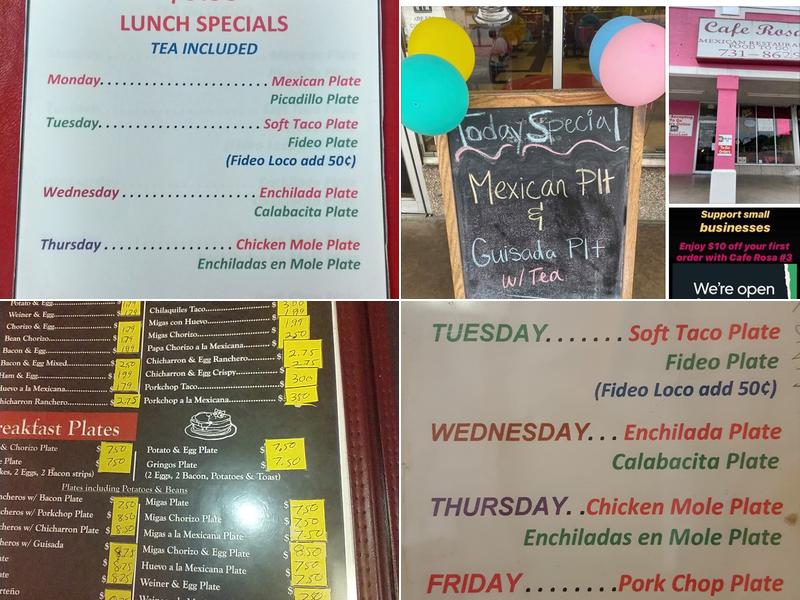 LUNCH SPECIALS
TEA INCLUDED
Monday........................Mexican Plate
Picadillo Plate
Tuesday........................Soft Taco Plate
Fideo Plate
(Fideo Loco add 50¢)
Wednesday....................Enchilada Plate
Calabacita Plate
Thursday...................Chicken Mole Plate
Enchiladas en Mole Plate
Today Special
Mexican Plt
&
Guisada Plt
w/Tea
Cafe Rosa
MEXICAN RESTAURA
FOOD TO GO
731-8625
Support small
businesses
Enjoy $10 off your first
order with Cafe Rosa #3
We're open
Potato & Egg
Weiner & Egg
Chorizo & Egg
Bean Chorizo
Bacon & Egg
Bacon & Egg Mixed
Ham & Egg
Huevo a la Mexicana
hicharron Ranchero 2.75
Chilaquiles Taco
Migas con Huevo
Migas Chorizo
Papa Chorizo a la Mexicana
Chicharron & Egg Ranchero
Chicharron & Egg Crispy
Porkchop Taco $ 300
Porkchop a la Mexicana $ 350
reakfast Plates
& Chorizo Plate $ 750
e Plate $ 750
kes, 2 Eggs, 2 Bacon strips)
Potato & Egg Plate $ 7.50
Gringos Plate $ 7.50
(2 Eggs, 2 Bacon, Potatoes & Toast)
Plates including Potatoes & Beans
ncheros w/ Bacon Plate $ 7.50
ncheros w/ Porkchop Plate $ 8.50
cheros w/ Chicharron Plate $ 8.50
cheros w/ Guisada $ 8.75
ate $ 8.75
te $ 8.25
rteño
Migas Plate $ 7.50
Migas Chorizo Plate $ 7.50
Migas a la Mexicana Plate $ 7.50
Migas Chorizo & Egg Plate $ 8.50
Huevo a la Mexicana Plate $ 7.50
Weiner & Egg Plate $ 7.50
TUESDAY.......Soft Taco Plate
Fideo Plate
(Fideo Loco add 50¢)
WEDNESDAY...Enchilada Plate
Calabacita Plate
THURSDAY..Chicken Mole Plate
Enchiladas en Mole Plate
FRIDAY........Pork Chop Plate